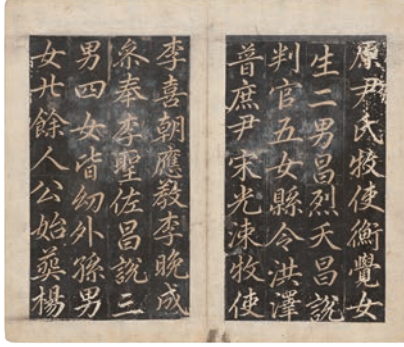 原尹氏牧使衡覺女
生二男昌烈天昌說
判官五女縣令洪澤
普庶尹宋光涑牧使
李喜朝應敎李晩成
叅奉李聖佐昌說三
男四女皆幼外孫男
女廿餘人公始葬楊